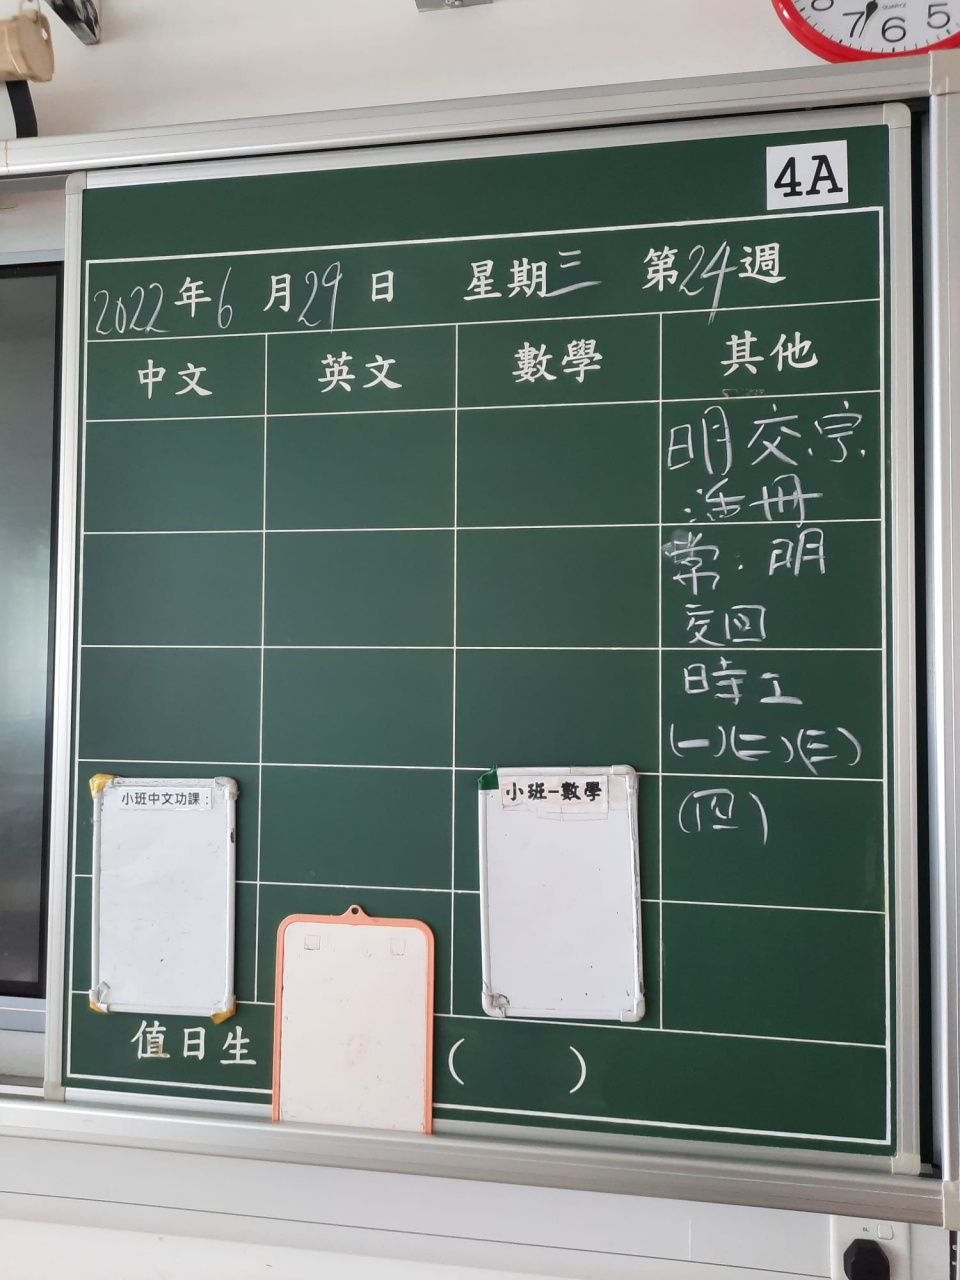 8 7 6 5
QUARTZ
4A
2022年6月29日 星期三 第24週
中文 英文 數學 其他
明交.字.
活冊
常.明
交回
時工
(一)(二)(三)
(四)
小班中文功課:
小班-數學
值日生 ( )